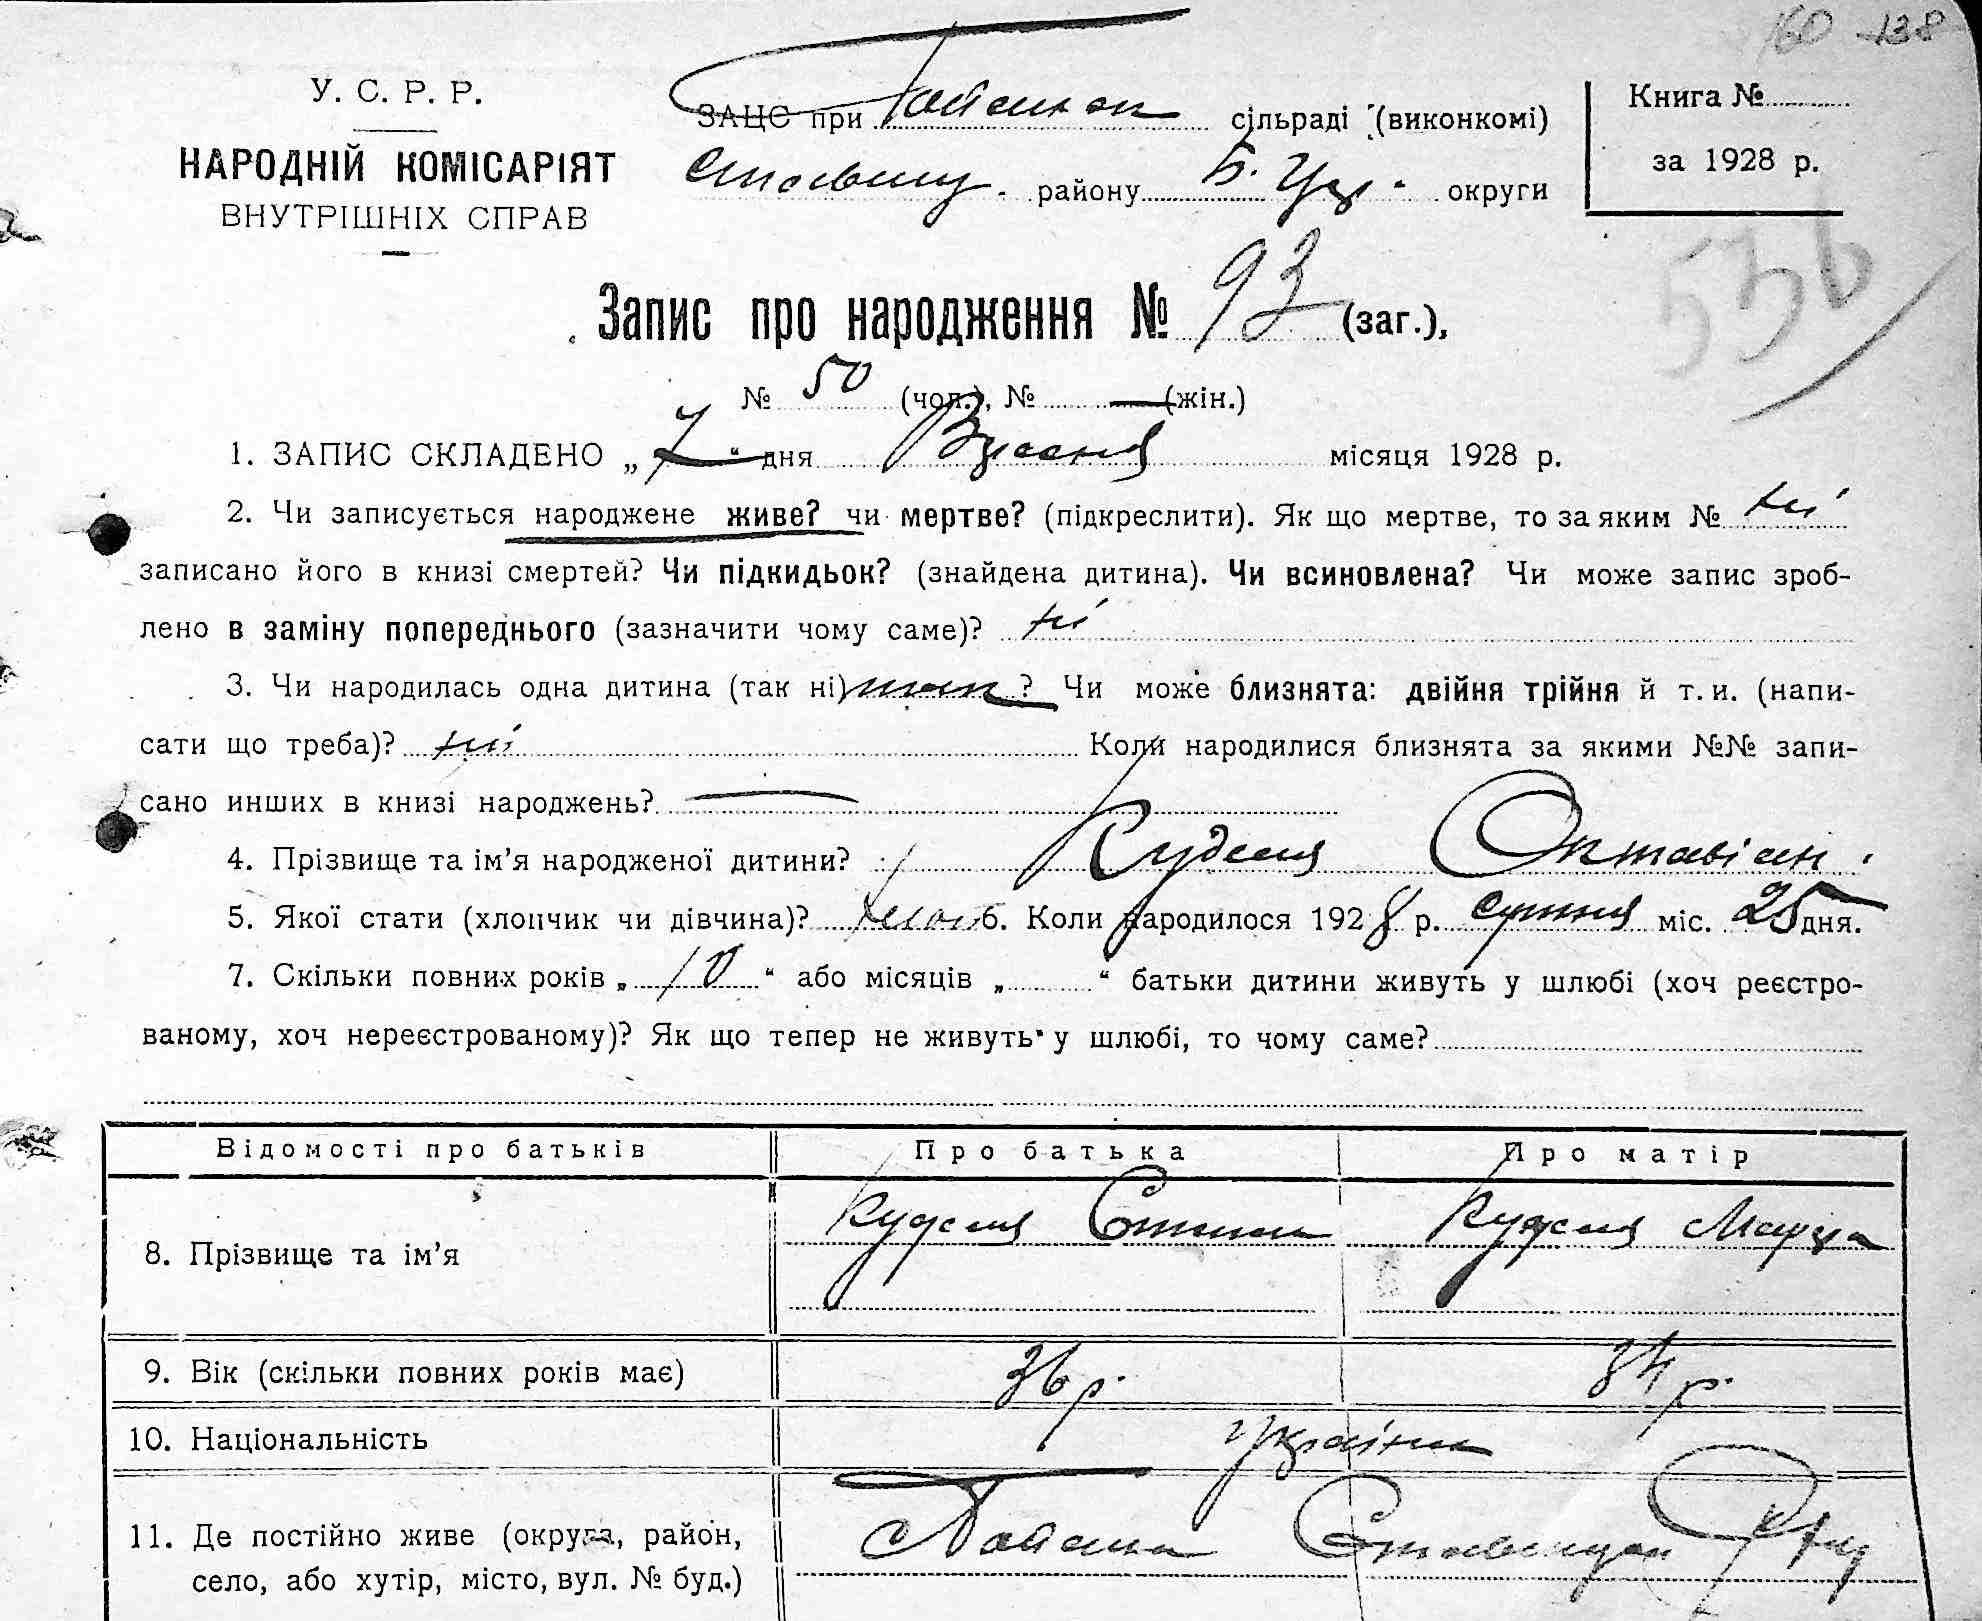 160 138
У. С. Р. Р.
НАРОДНІЙ КОМІСАРІЯТ
ВНУТРІШНІХ СПРАВ
ЗАЦС при сільраді (виконкомі)
району Б. Це. округи
Книга №
за 1928 р.
Запис про народження № 93 (заг.),
536
№ 50 (чол.), № — (жін.)
1. ЗАПИС СКЛАДЕНО „7“ дня Вресня місяця 1928 р.
2. Чи записується народжене живе? чи мертве? (підкреслити). Як що мертве, то за яким № ні
записано його в книзі смертей? Чи підкидьок? (знайдена дитина). Чи всиновлена? Чи може запис зроб-
лено в заміну попереднього (зазначити чому саме)? ні
3. Чи народилась одна дитина (так ні) так ? Чи може близнята: двійня трійня й т. и. (напи-
сати що треба)? ні Коли народилися близнята за якими №№ запи-
сано инших в книзі народжень? —
4. Прізвище та ім’я народженої дитини? Куделя Октавіан.
5. Якої стати (хлопчик чи дівчина)? 6. Коли народилося 1928 р. серпня міс. 25 дня.
7. Скільки повних років „ 10 “ або місяців „ “ батьки дитини живуть у шлюбі (хоч реєстро-
ваному, хоч нереєстрованому)? Як що тепер не живуть у шлюбі, то чому саме?
Відомості про батьків Про батька Про матір
8. Прізвище та ім’я Куделя Куделя
9. Вік (скільки повних років має) 36 р. 34 р.
10. Національність україн
11. Де постійно живе (округа, район,
село, або хутір, місто, вул. № буд.)